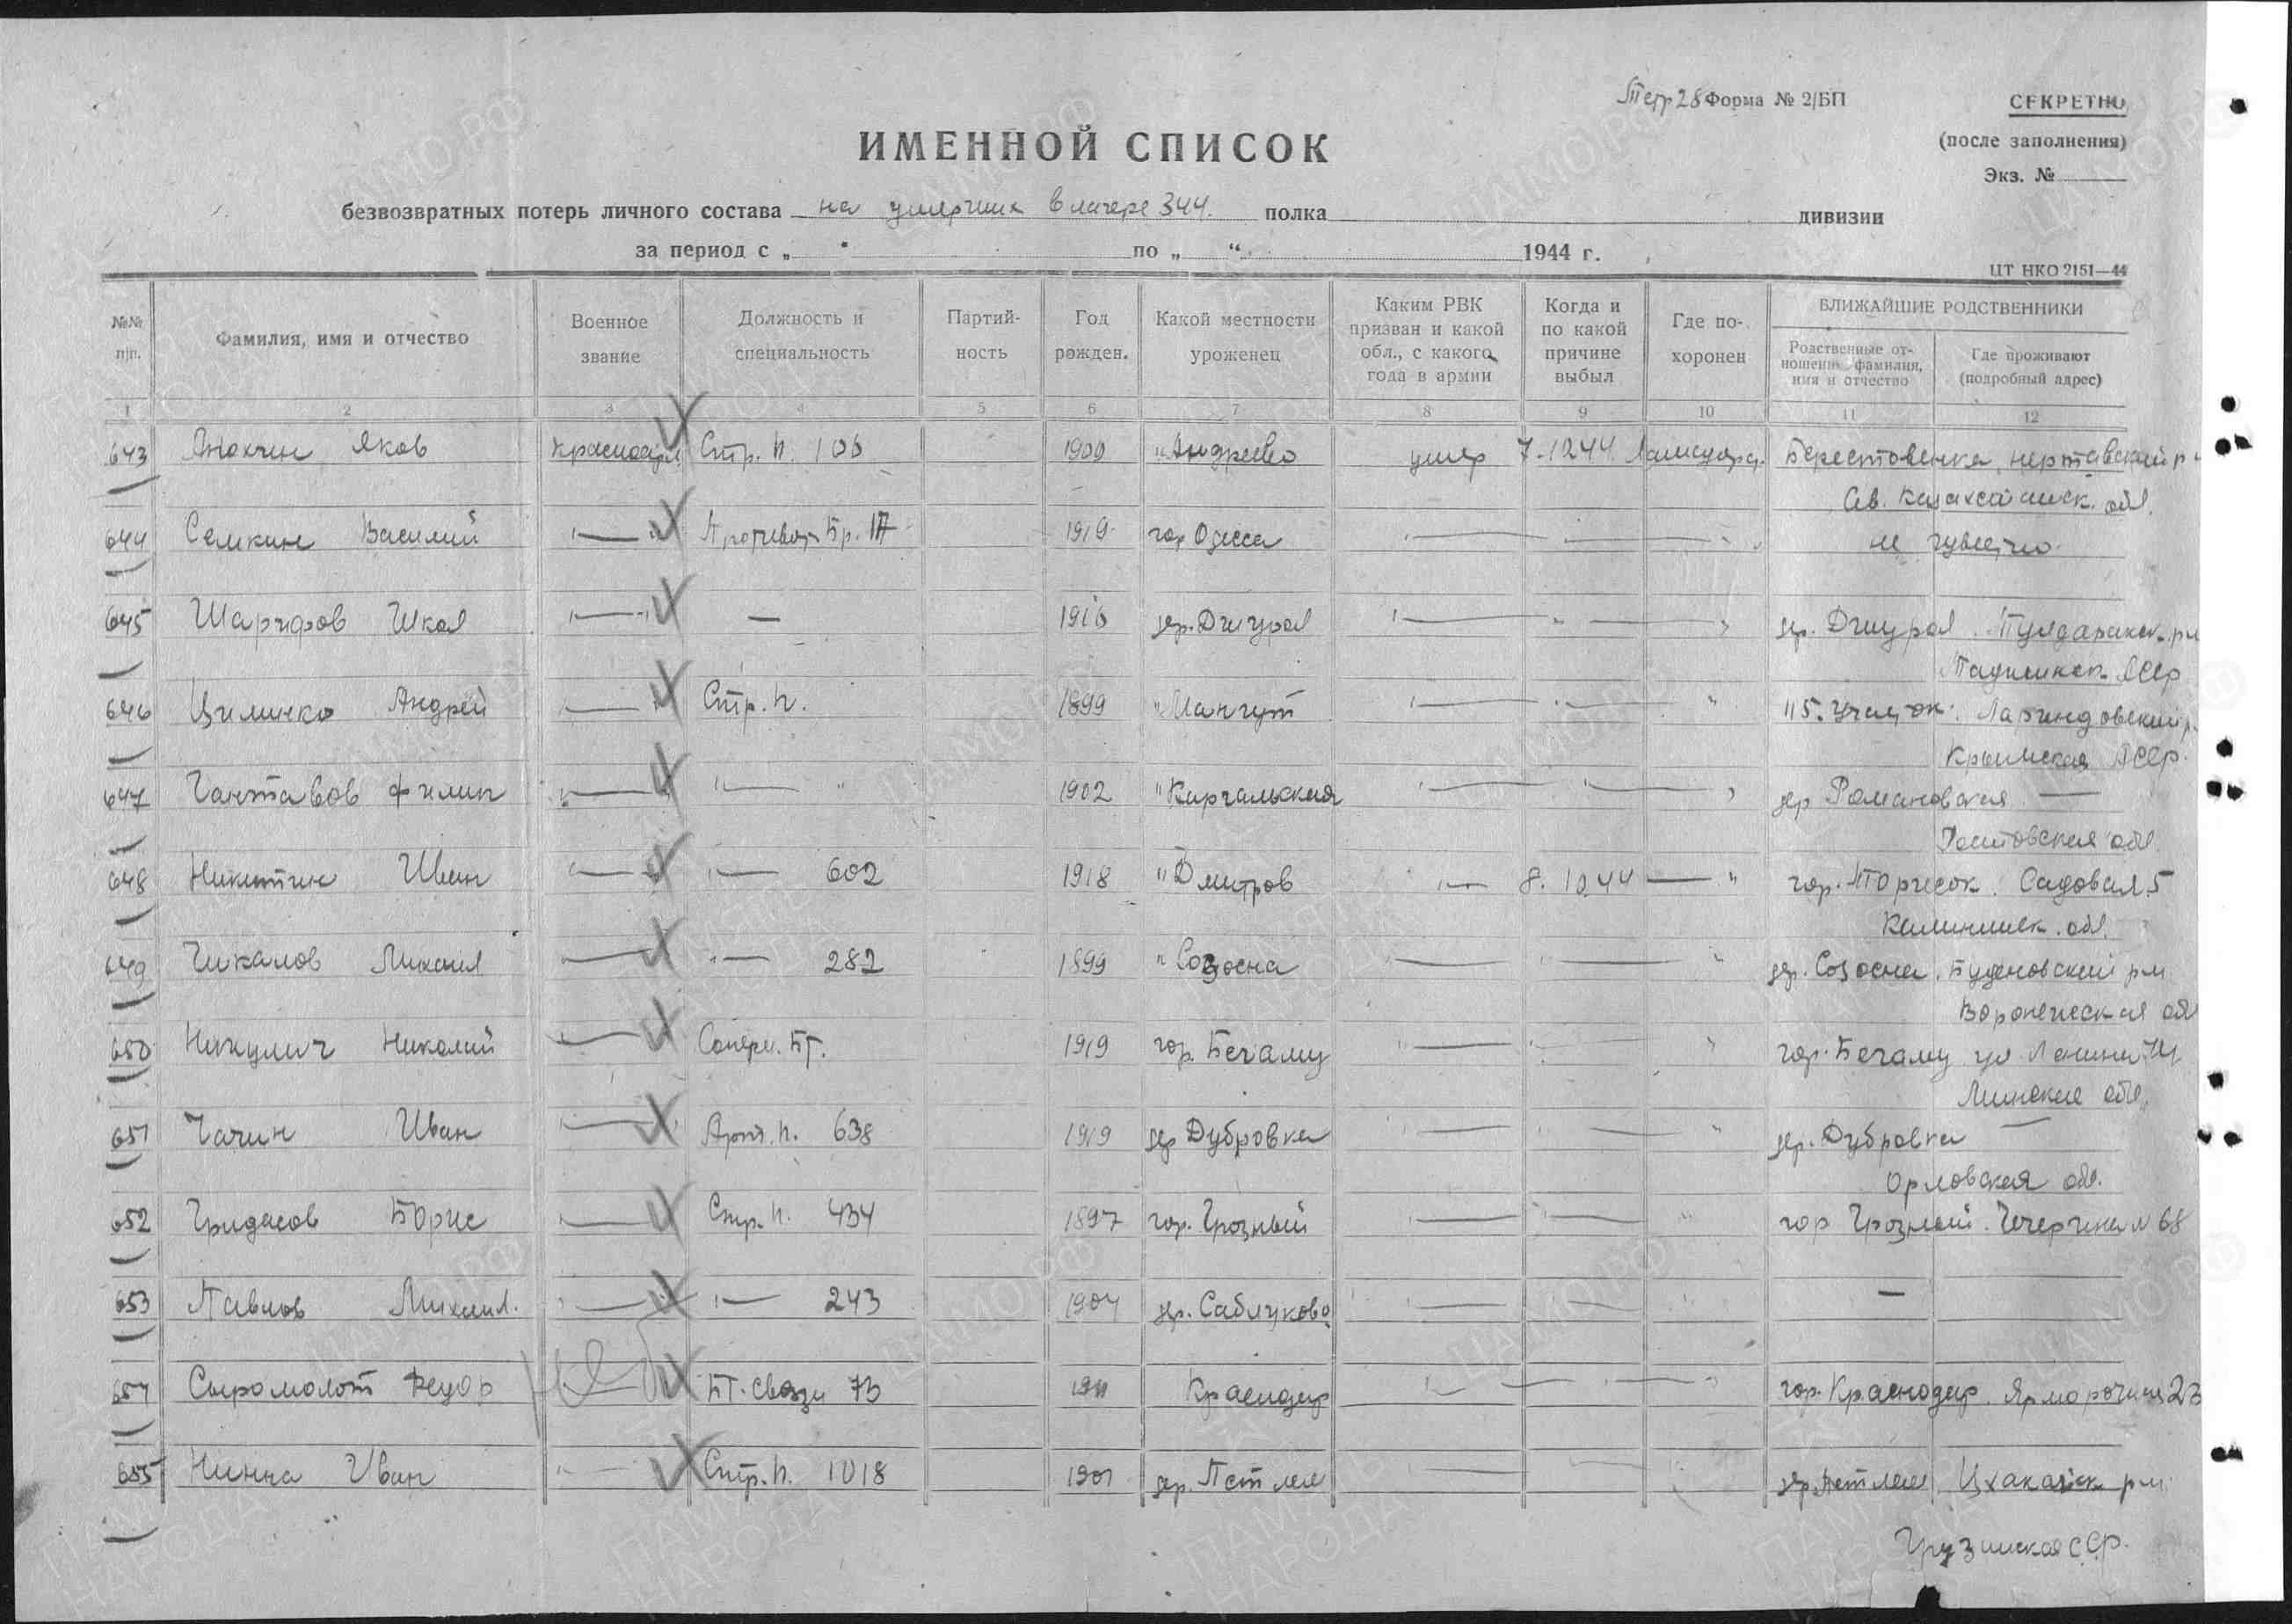 Тетр 28 Форма № 2/БП
СЕКРЕТНО
(после заполнения)
Экз. №
ИМЕННОЙ СПИСОК
безвозвратных потерь личного состава на умерших в лагере 344. полка дивизии
за период с „ “ по „ “ 1944 г.
ЦТ НКО 2151—44
№№ п/п. Фамилия, имя и отчество Военное звание Должность и специальность Партий-ность Год рожден. Какой местности уроженец Каким РВК призван и какой обл., с какого года в армии Когда и по какой причине выбыл Где по-хоронен БЛИЖАЙШИЕ РОДСТВЕННИКИ
Родственные от-ношения, фамилия, имя и отчество Где проживают (подробный адрес)
1 2 3 4 5 6 7 8 9 10 11 12
643 Анохин Яков Красноарм. Стр. п. 106 1909 "Андреево умер 7.12 44 Берестовенка,
Сев. Казахстанск. обл.
644 Семкин Василий "—" 1919 гор Одесса "—" не
645 Шарифов "—" — 1916 дер. "—" дер.
Таджикск. ССР
646 Андрей "—" Стр. п. 1899 "Мангут "—" 115. участок. Лариндовский р.
Крымская АССР.
647 Филип "—" "—" 1902 "Каргальская "—" дер Романовская —
Ростовская обл.
648 Никитин Иван "—" "— 602 1918 "Дмитров "— 8. 10 44 —" гор. Торжок. Садовая 5
Калининск. обл.
649 Чикалов Михаил "—" "— 282 1899 "Созосна "—" дер. Созосна, Буденовский рн
Воронежская обл
650 Никулич Николай "—" Саперн. БТ. 1919 гор. Бегаму "—" гор. Бегаму ул Ленина
Минская обл.
651 Чачин Иван "—" Арт. п. 638 1919 дер Дубровка "—" дер. Дубровка —
Орловская обл.
652 Гридасов Борис "—" Стр. п. 434 1897 гор. Грозный "—" гор Грозный. № 68
653 Павлов Михаил. "—" "— 243 1904 дер. Саблуково "—" —
654 Сыромолот Федор "—" БТ. связи 73 1911 Краснодар "—" гор. Краснодар. Ярмарочная 23
655 Нинка Иван "—" Стр. п. 1018 1901 дер. "—" дер. Цхакайск рн
Грузинская ССР.